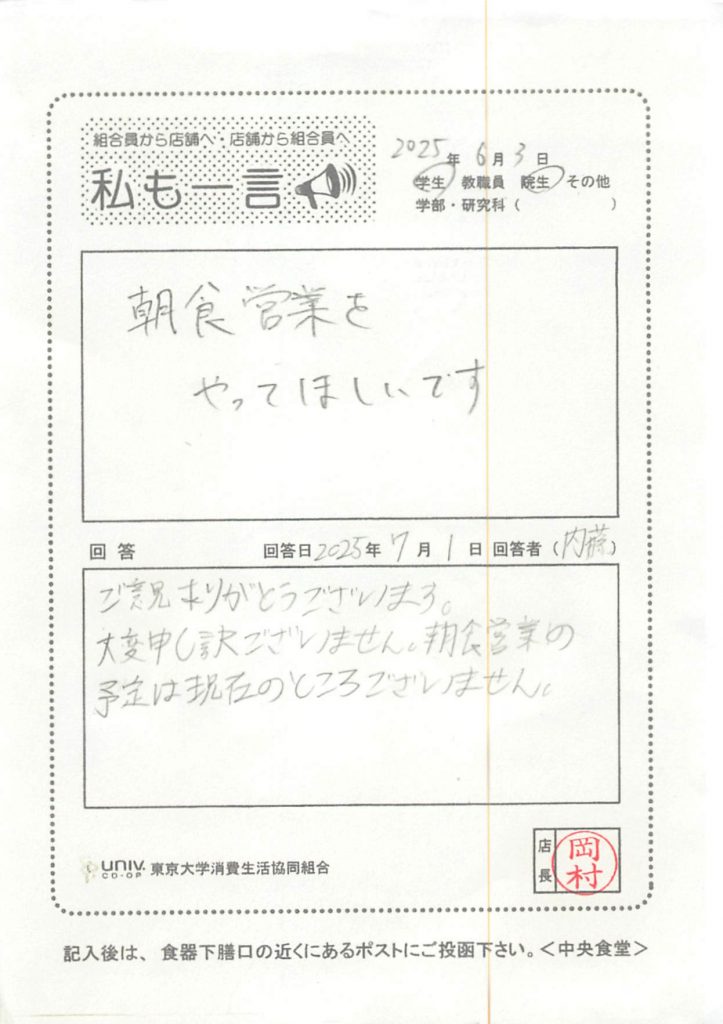 組合員から店舗へ・店舗から組合員へ
私も一言
2025年 6月 3日
学生 教職員 院生 その他
学部・研究科（　　　　　　）
朝食営業を
やってほしいです
回答 回答日2025年 7月 1日 回答者（内藤）
ご意見ありがとうございます。
大変申し訳ございません。朝食営業の
予定は現在のところございません。
UNIV. CO-OP 東京大学消費生活協同組合
店長 岡村
記入後は、食器下膳口の近くにあるポストにご投函下さい。＜中央食堂＞